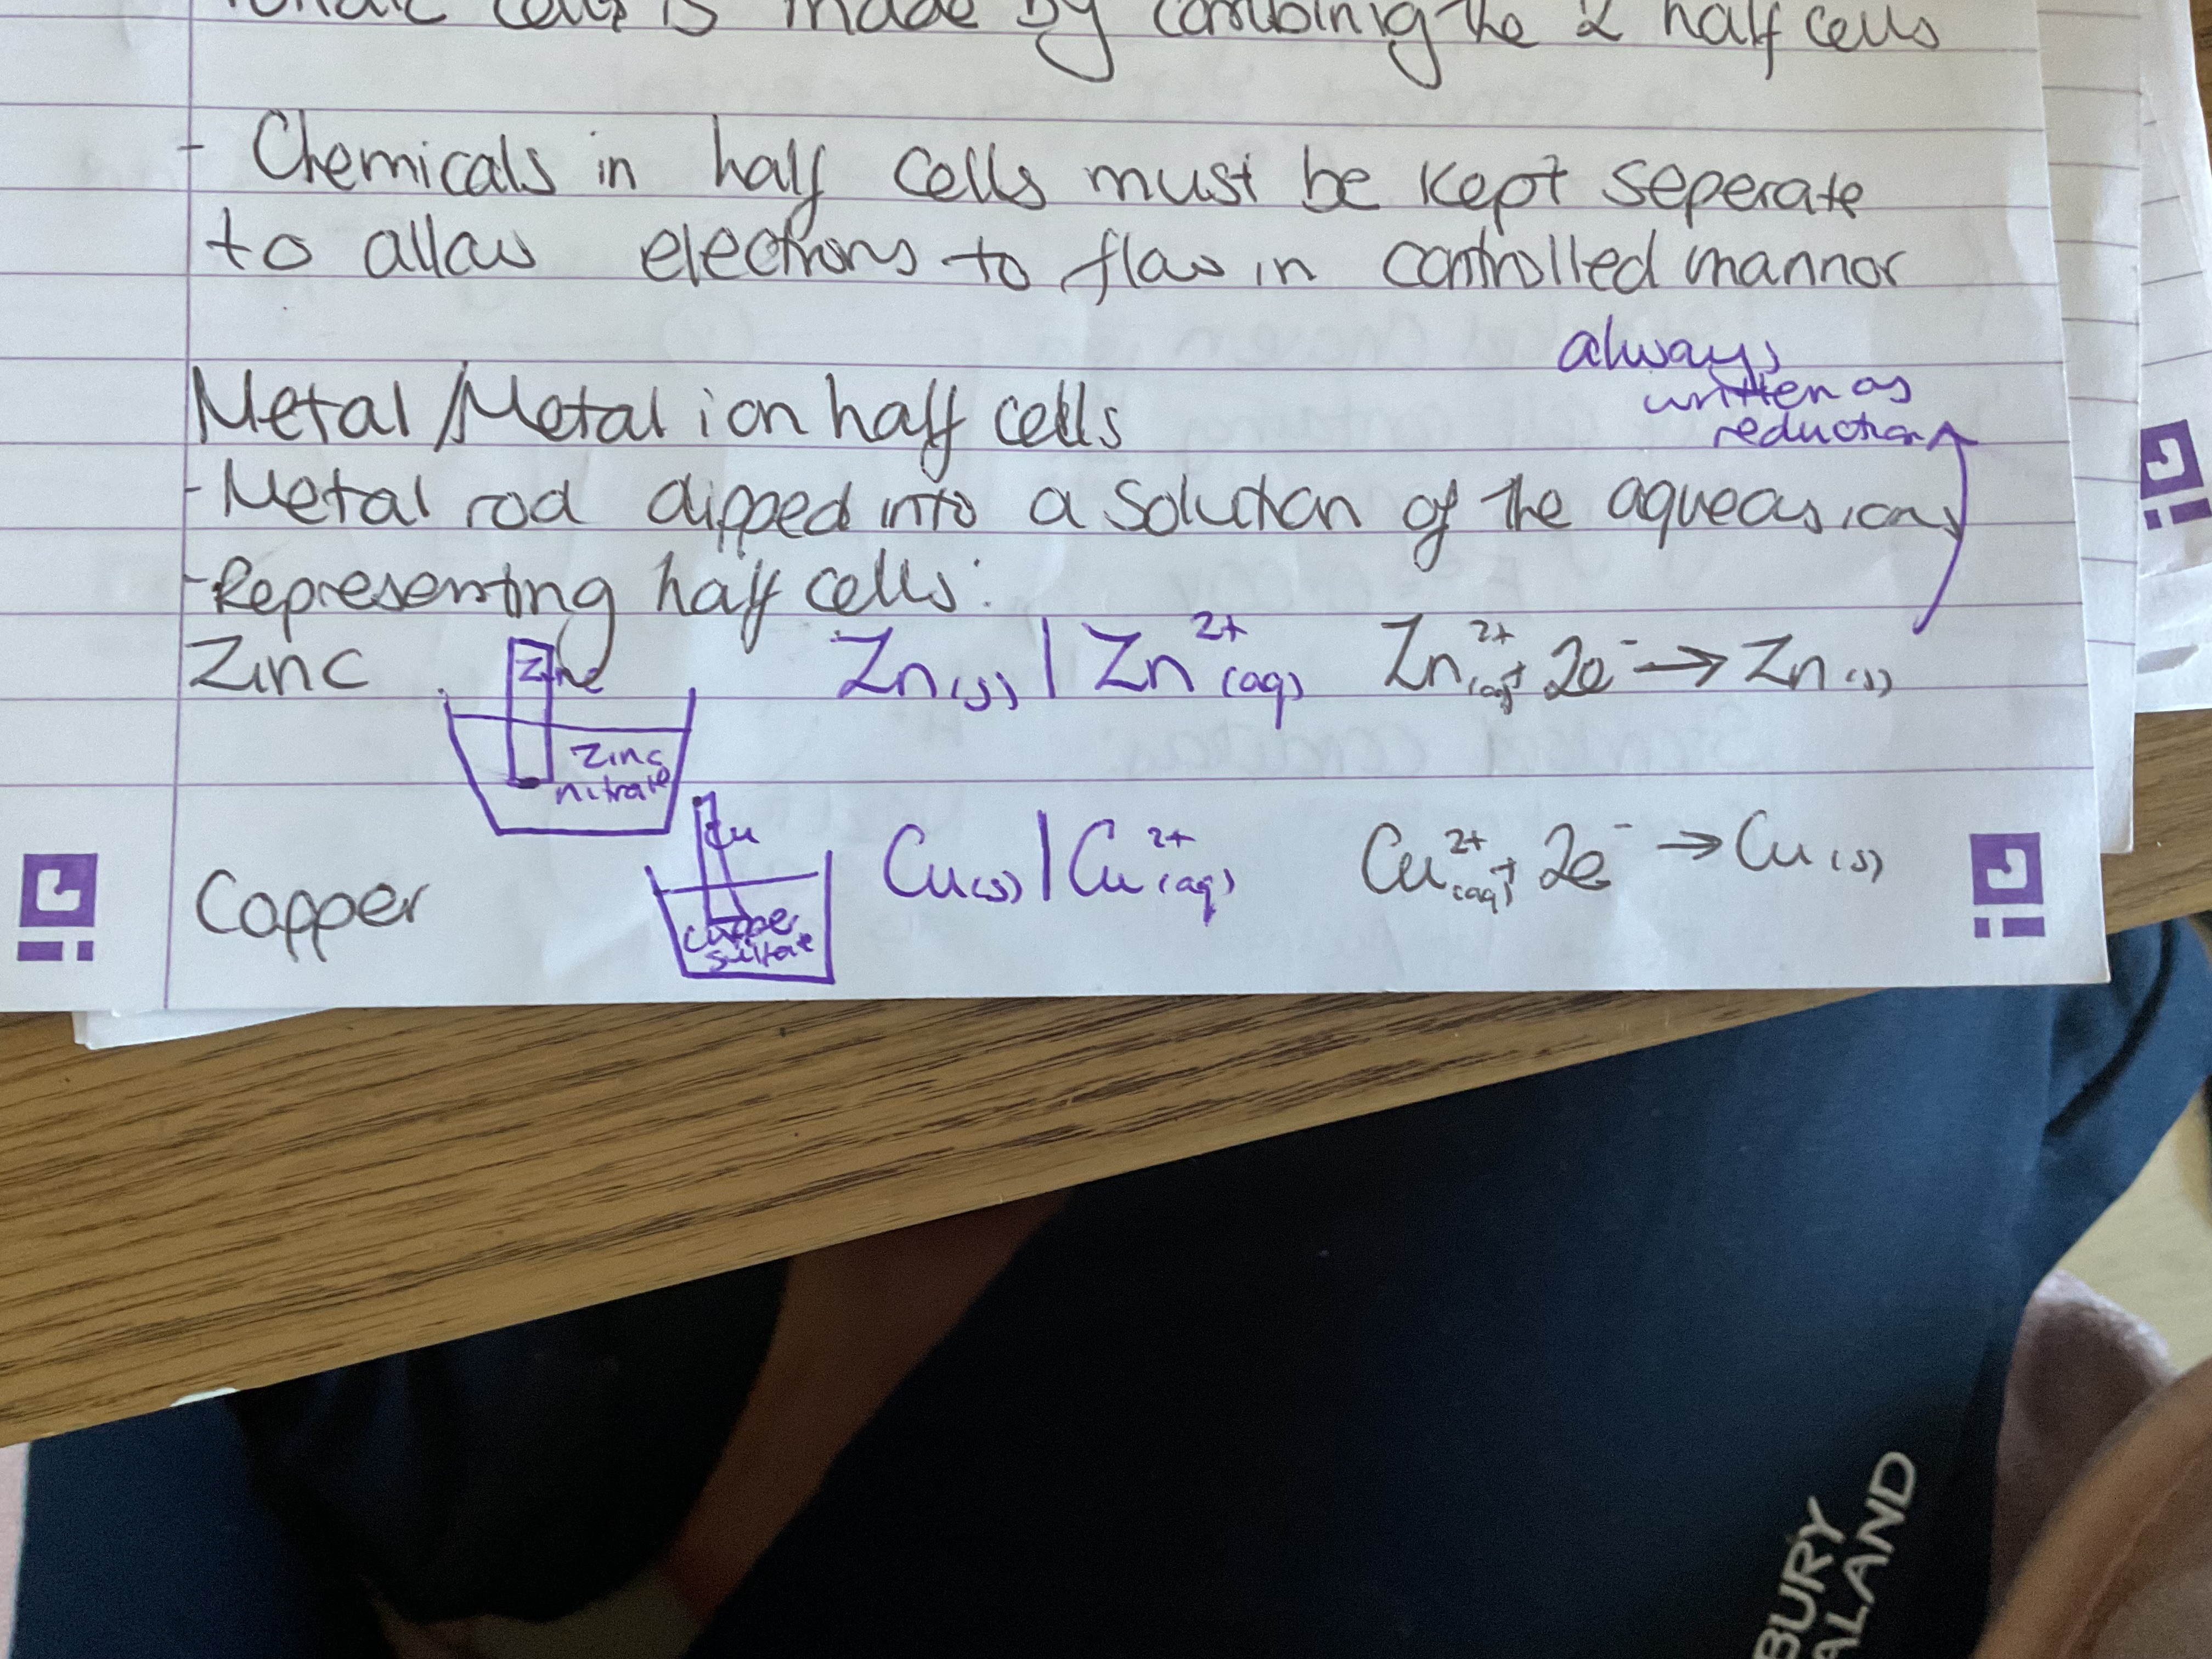 cells is made by combining the 2 half cells
- Chemicals in half cells must be kept seperate
to allow electrons to flow in controlled mannor
always
written as
reduction
Metal/Metal ion half cells
- Metal rod dipped into a solution of the aqueous ions
- Representing half cells:
Zinc Zinc Zn(s) | Zn²⁺(aq) Zn²⁺(aq) + 2e⁻ → Zn(s)
Zinc
nitrate
Copper Cu Cu(s) | Cu²⁺(aq) Cu²⁺(aq) + 2e⁻ → Cu(s)
copper
sulfate
BURY
ALAND